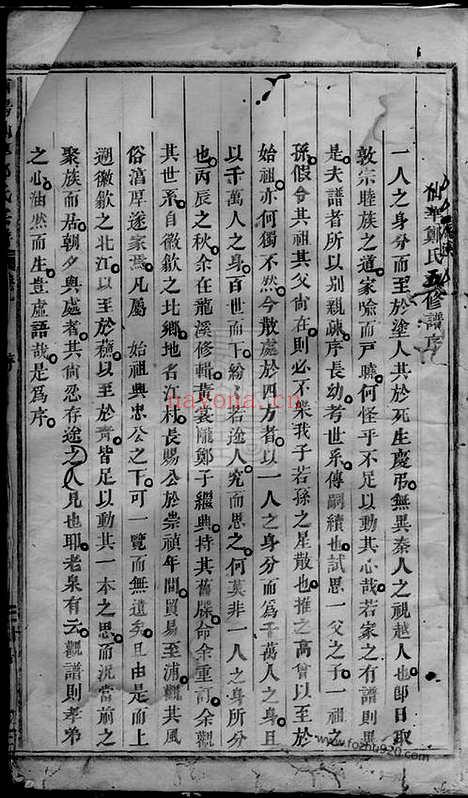 仙華鄭氏五修譜序
一人之身分而至於塗人其於死生慶弔無異秦人之視越人也卽日取
敦宗睦族之道家喻而戸曉何怪乎不足以動其心哉若家之有譜則異
是夫譜者所以別親疎序長幼考世系傳嗣續也試思一父之子一祖之
孫假令其祖其父尙在則必不樂我子若孫之星散也推之高曾以至於
始祖亦何獨不然今散處於四方者以一人之身分而爲千萬人之身且
以千萬人之身百世而下紛紛若途人究而思之何莫非一人之身所分
也丙辰之秋余在龍溪修輯袁裳隴鄭子繼典持其舊牒命余重訂余觀
其世系自徽歙之北鄉地名江村長賜公於崇禎年間貿易至浦觀其風
俗湻厚遂家焉凡屬　始祖興忠公之下可一覽而無遺矣且由是而上
遡徽歙之北江以至於穗以至於靑皆足以動其一本之思而況當前之
聚族而居朝夕與處者其尙忍存途之人見也耶老泉有云觀譜則孝弟
之心油然而生豈虛語哉是爲序
nayona.cn
www.fozhu920.com